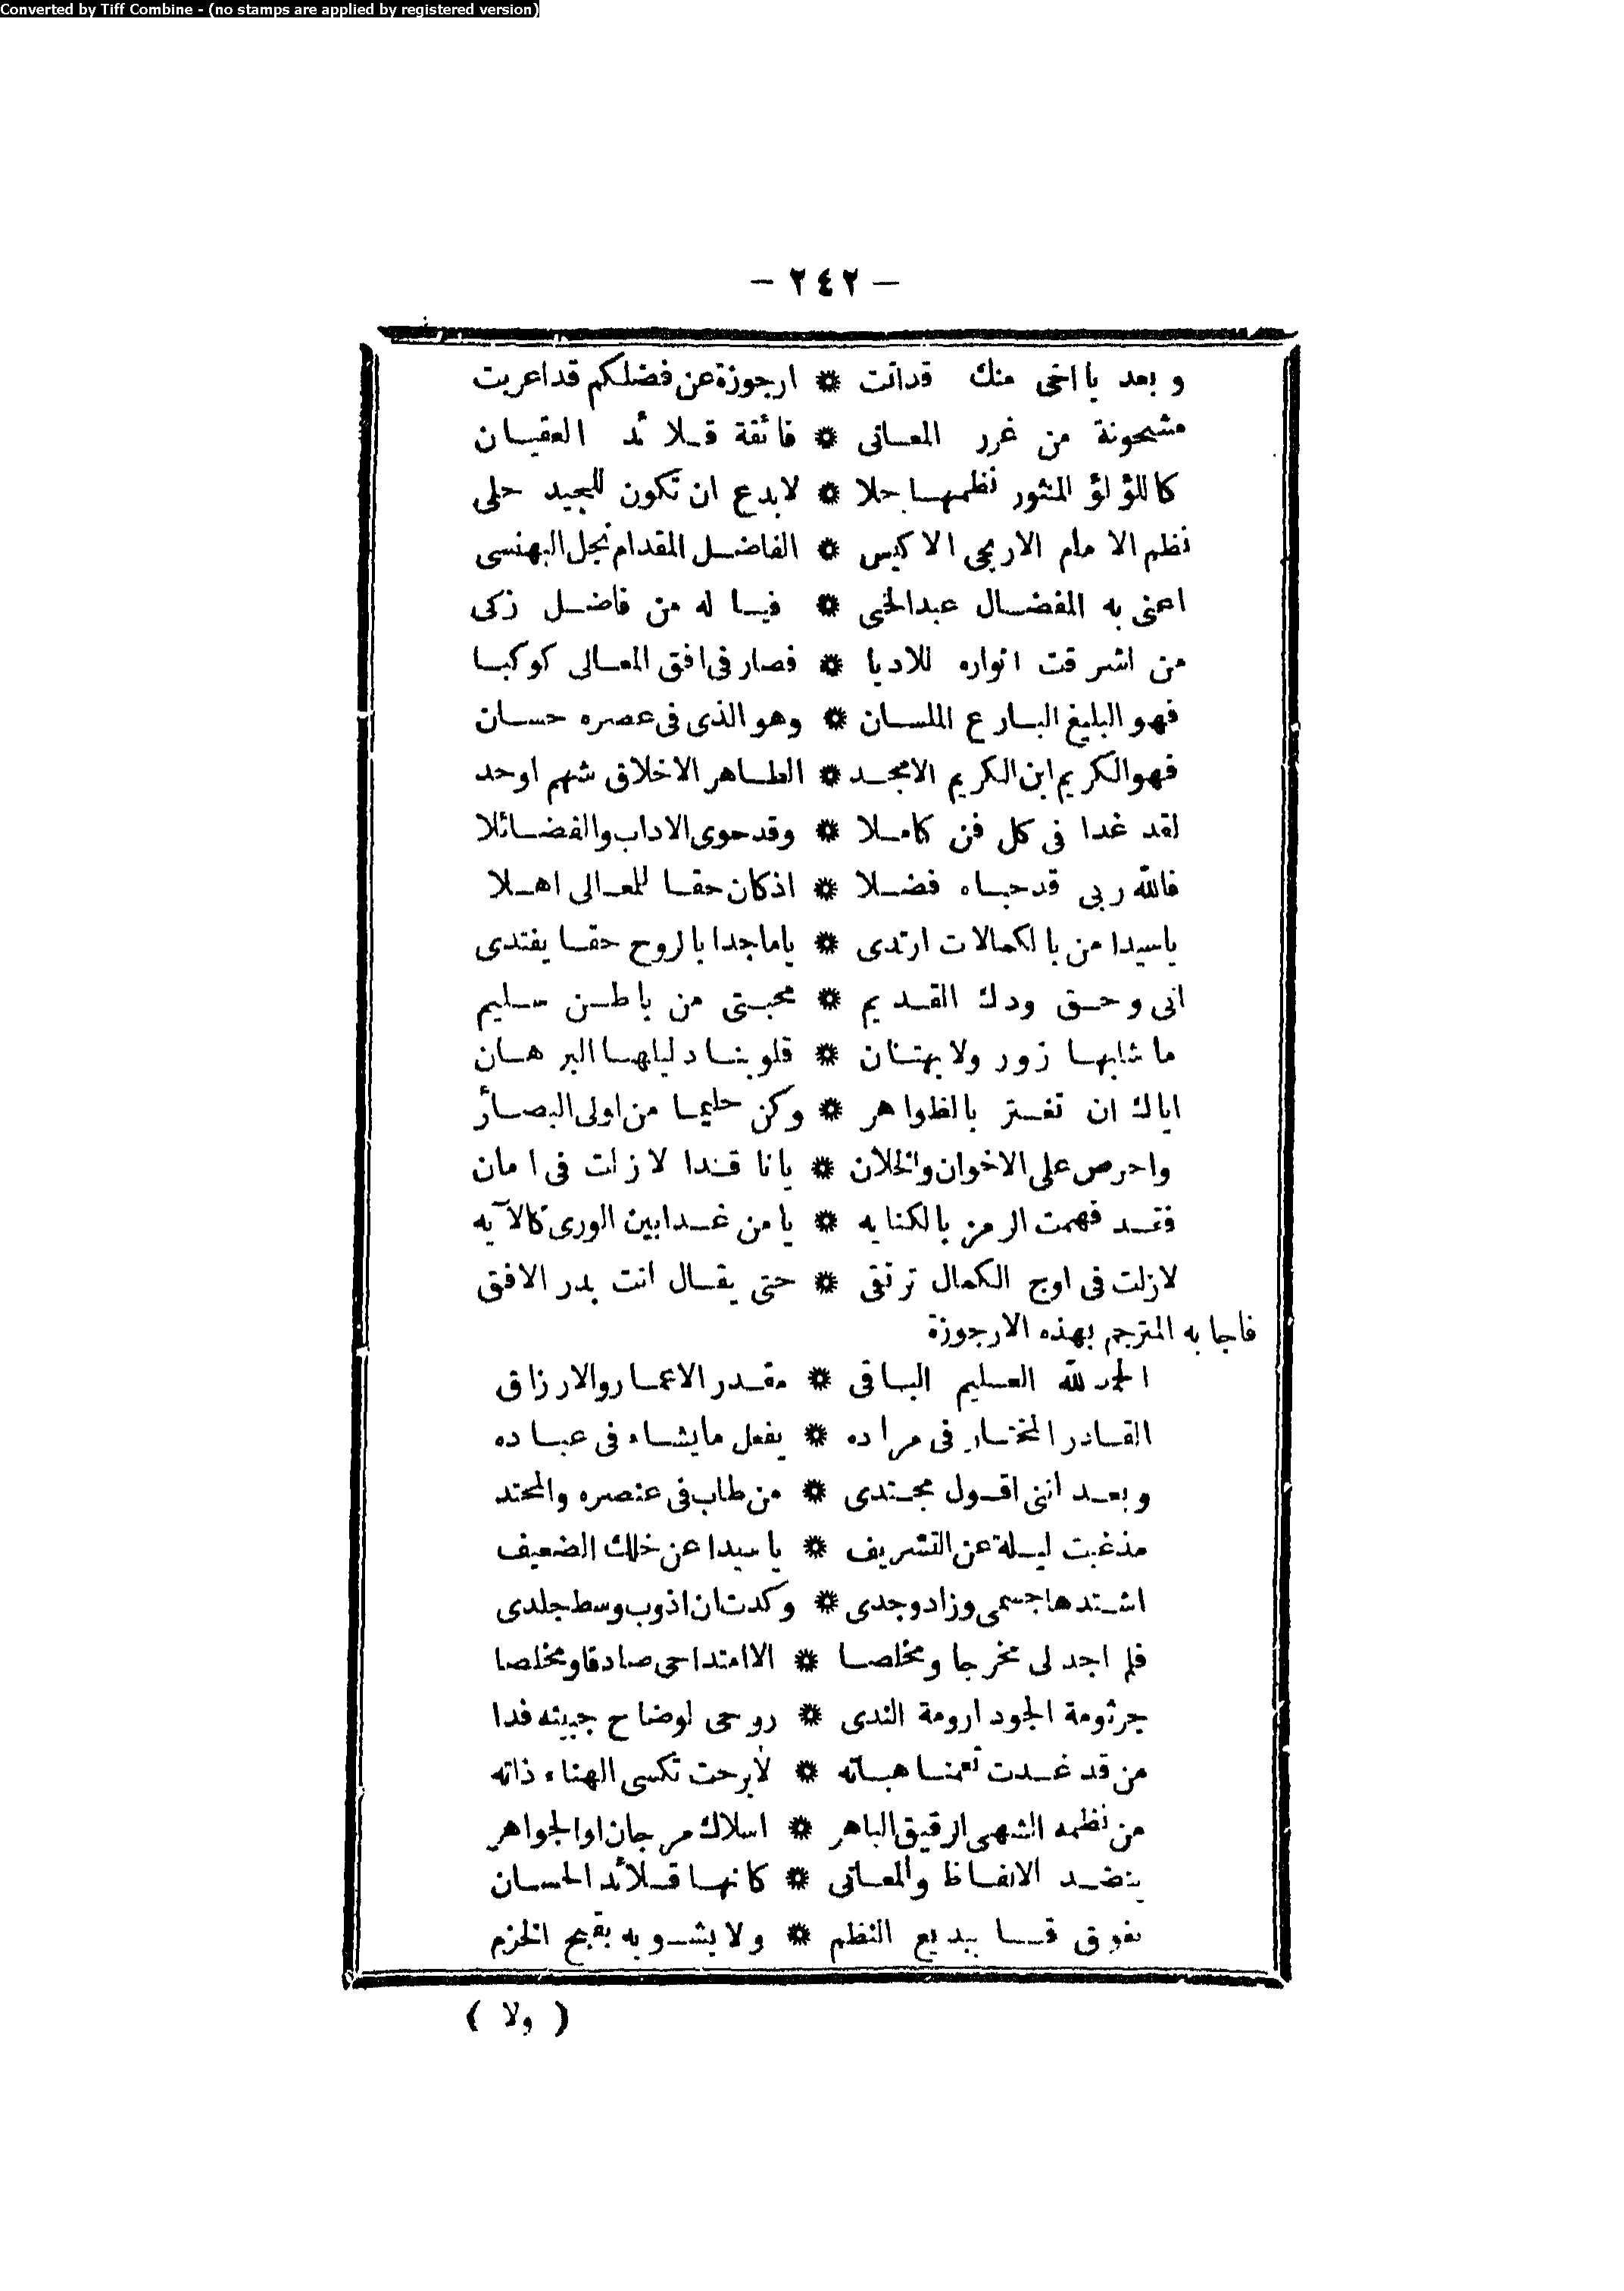 Converted by Tiff Combine - (no stamps are applied by registered version)
- ٢٤٢ -
وبعد يا اخى منك قداتت * ارجوزة عن فضلكم قداعربت
مشحونة من غرر المعانى * فائقة قلائد العقيان
كاللؤلؤ المنثور نظمها جلا * لابدع ان تكون للجيد حلى
نظم الامام الاريحى الاكيس * الفاضل المقدام نجل البهنسى
اعنى به المفضال عبدالحى * فيا له من فاضل زكى
من اشرقت انواره للادبا * فصار فى افق المعالى كوكبا
فهو البليغ البارع اللسان * وهو الذى فى عصره حسان
فهو الكريم ابن الكريم الامجد * الطاهر الاخلاق شهم اوحد
لقد غدا فى كل فن كاملا * وقد حوى الاداب والفضائلا
فالله ربى قد حباه فضلا * اذكان حقا للمعالى اهلا
ياسيدا من بالكمالات ارتدى * ياماجدا بالروح حقا يفتدى
انى وحق ودك القديم * محبتى من باطن سليم
ما شابها زور ولا بهتان * قلوبنا دليلها البرهان
اياك ان تغتر بالظواهر * وكن حليما من اولى البصائر
واحرص على الاخوان والخلان * يا ناقدا لازلت فى امان
فقد فهمت الرمز بالكنايه * يا من غدا بين الورى كالآيه
لازلت فى اوج الكمال ترتقى * حتى يقال انت بدر الافق
فاجابه المترجم بهذه الارجوزة
الحمد لله العليم الباقى * مقدر الاعمار والارزاق
القادر المختار فى مراده * يفعل مايشاء فى عباده
وبعد اننى اقول مجتدى * من طاب فى عنصره والمحتد
مذغبت ليلة عن التشريف * ياسيدا عن خلك الضعيف
اشتدها جسمى وزاد وجدى * وكدت ان اذوب وسط جلدى
فلم اجد لى مخرجا ومخلصا * الا امتداحى صادقا ومخلصا
جرثومة الجود ارومة الندى * روحى لوضاح جبينه فدا
من قد غدت تعمنا هباته * لابرحت تكسى الهناء ذاته
من نظمه الشهى الرقيق الباهر * اسلاك مرجان او الجواهر
ينضد الالفاظ والمعانى * كانها قلائد الحسان
يفوق قسا ببديع النظم * ولا يشوبه بقبيح الخزم
( ولا )